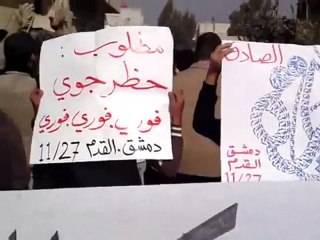 مطلوب :
حظر جوي
فوري.فوري.فوري
دمشق.القدم 11/27
دمشق
القدم
11/27